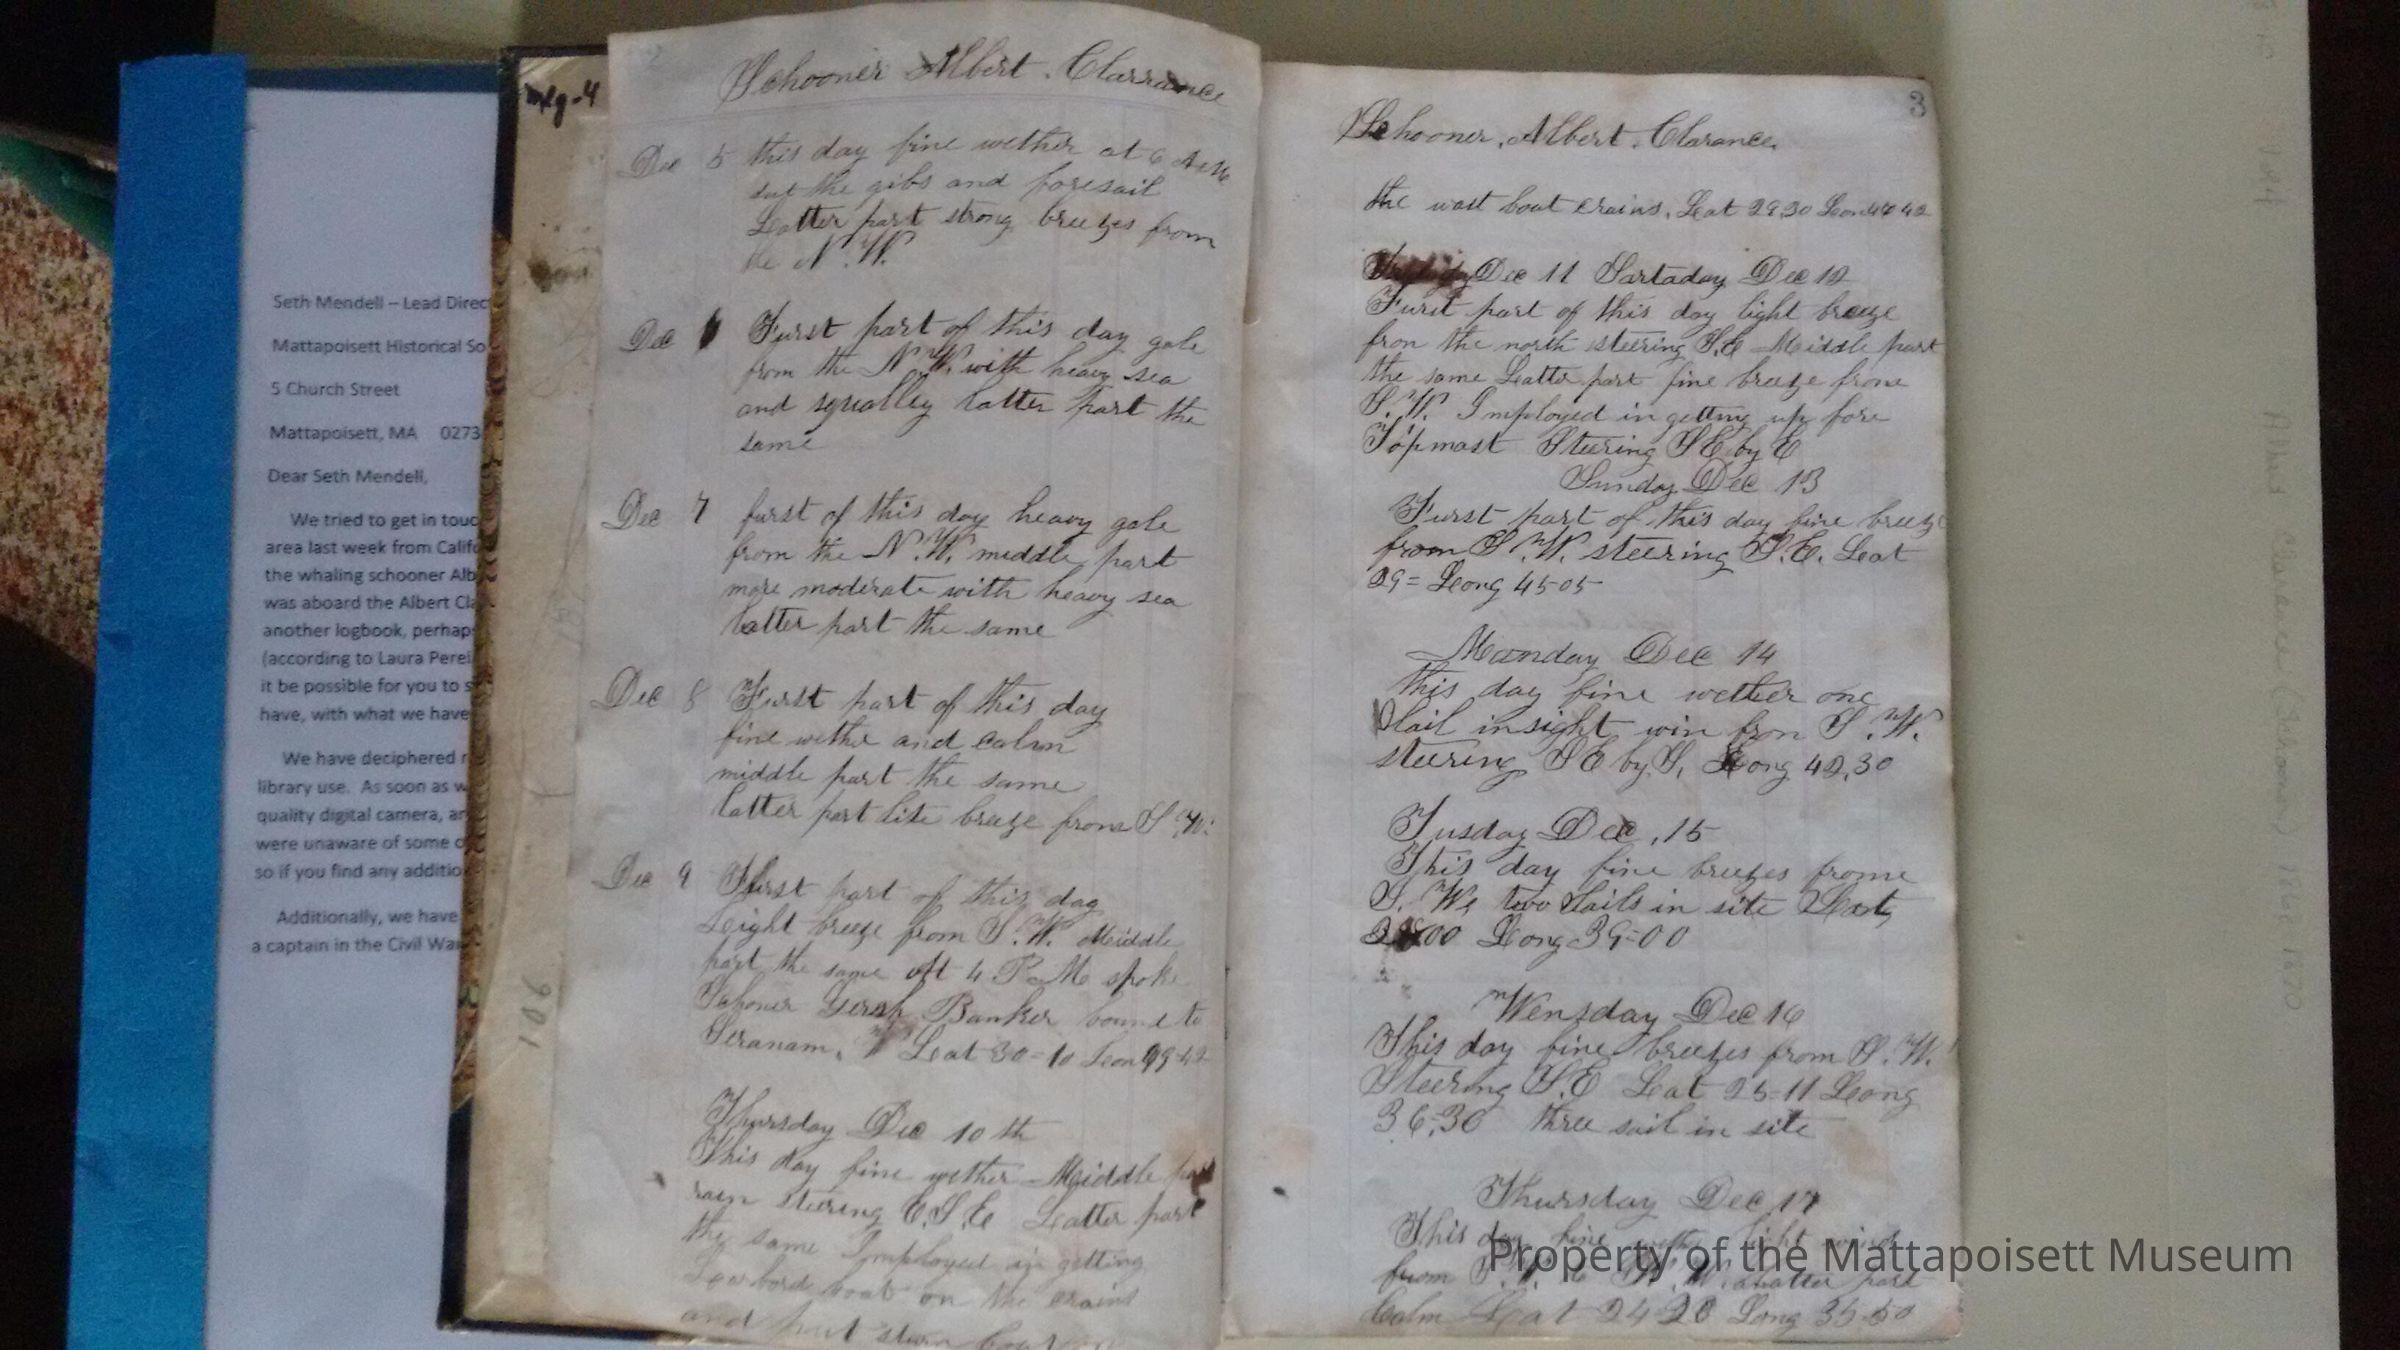 Seth Mendell – Lead Direc
Mattapoisett Historical So
5 Church Street
Mattapoisett, MA 0273
Dear Seth Mendell,
We tried to get in touc
area last week from Califo
the whaling schooner Alb
was aboard the Albert Cla
another logbook, perhaps
(according to Laura Perei
it be possible for you to s
have, with what we have
We have deciphered
library use. As soon as w
quality digital camera, an
were unaware of some o
so if you find any additio
Additionally, we have
a captain in the Civil War
pg-4
106
2
Schooner Albert. Clarrance
Dec 5 this day fine wether at 6 A M
sut the gibs and foresail
Latter part strong breezes from
the N.W.
Dec 6 Furst part of this day gale
from the N.W. with heavy sea
and squalley latter part the
same
Dec 7 furst of this day heavy gale
from the N.W. middle part
more moderate with heavy sea
latter part the same
Dec 8 Furst part of this day
fine wether and calm
middle part the same
latter part lite breeze from S.W.
Dec 9 Furst part of this day
Leight breeze from S.W. Middle
part the same att 4 P.M spoke
Banker bound to
Seranam. Leat 30=10
Thursday Dec 10 th
This day fine wether Middle part
rain steering E.S.E Latter part
the same Imployed in getting
Larbord boat on the crains
and put stern boat
3
Schooner. Albert. Clarance.
the wast boat crains. Leat 29.30 Leon
Dec 11 Sartaday Dec 12
Furst part of this day light breeze
fron the north steering S.E Meiddle part
the same Latter part fine breeze frone
S.W. Imployed in getting up fore
Topmast Steering S E by E
Sunday Dec 13
Furst part of this day fine breeze
from S.W. steering S.E. Leat
29= Leong 45-05
Manday Dec 14
this day fine wether one
Sail in sight win fron S.W.
steering S E by S, Leong 42,30
Tusday Dec, 15
This day fine breezes frome
S. W, two Sails in site Leat,
00 Leong 39=00
Wensday Dec 16
This day fine breezes from S.W.
Steering S.E Leat 25-11 Leong
36,30 three sail in site
Thursday Dec 17
This day fine wether light winds
from S.W. to N.W. Latter part
Calm Leat 24 20 Long 35-50
Property of the Mattapoisett Museum